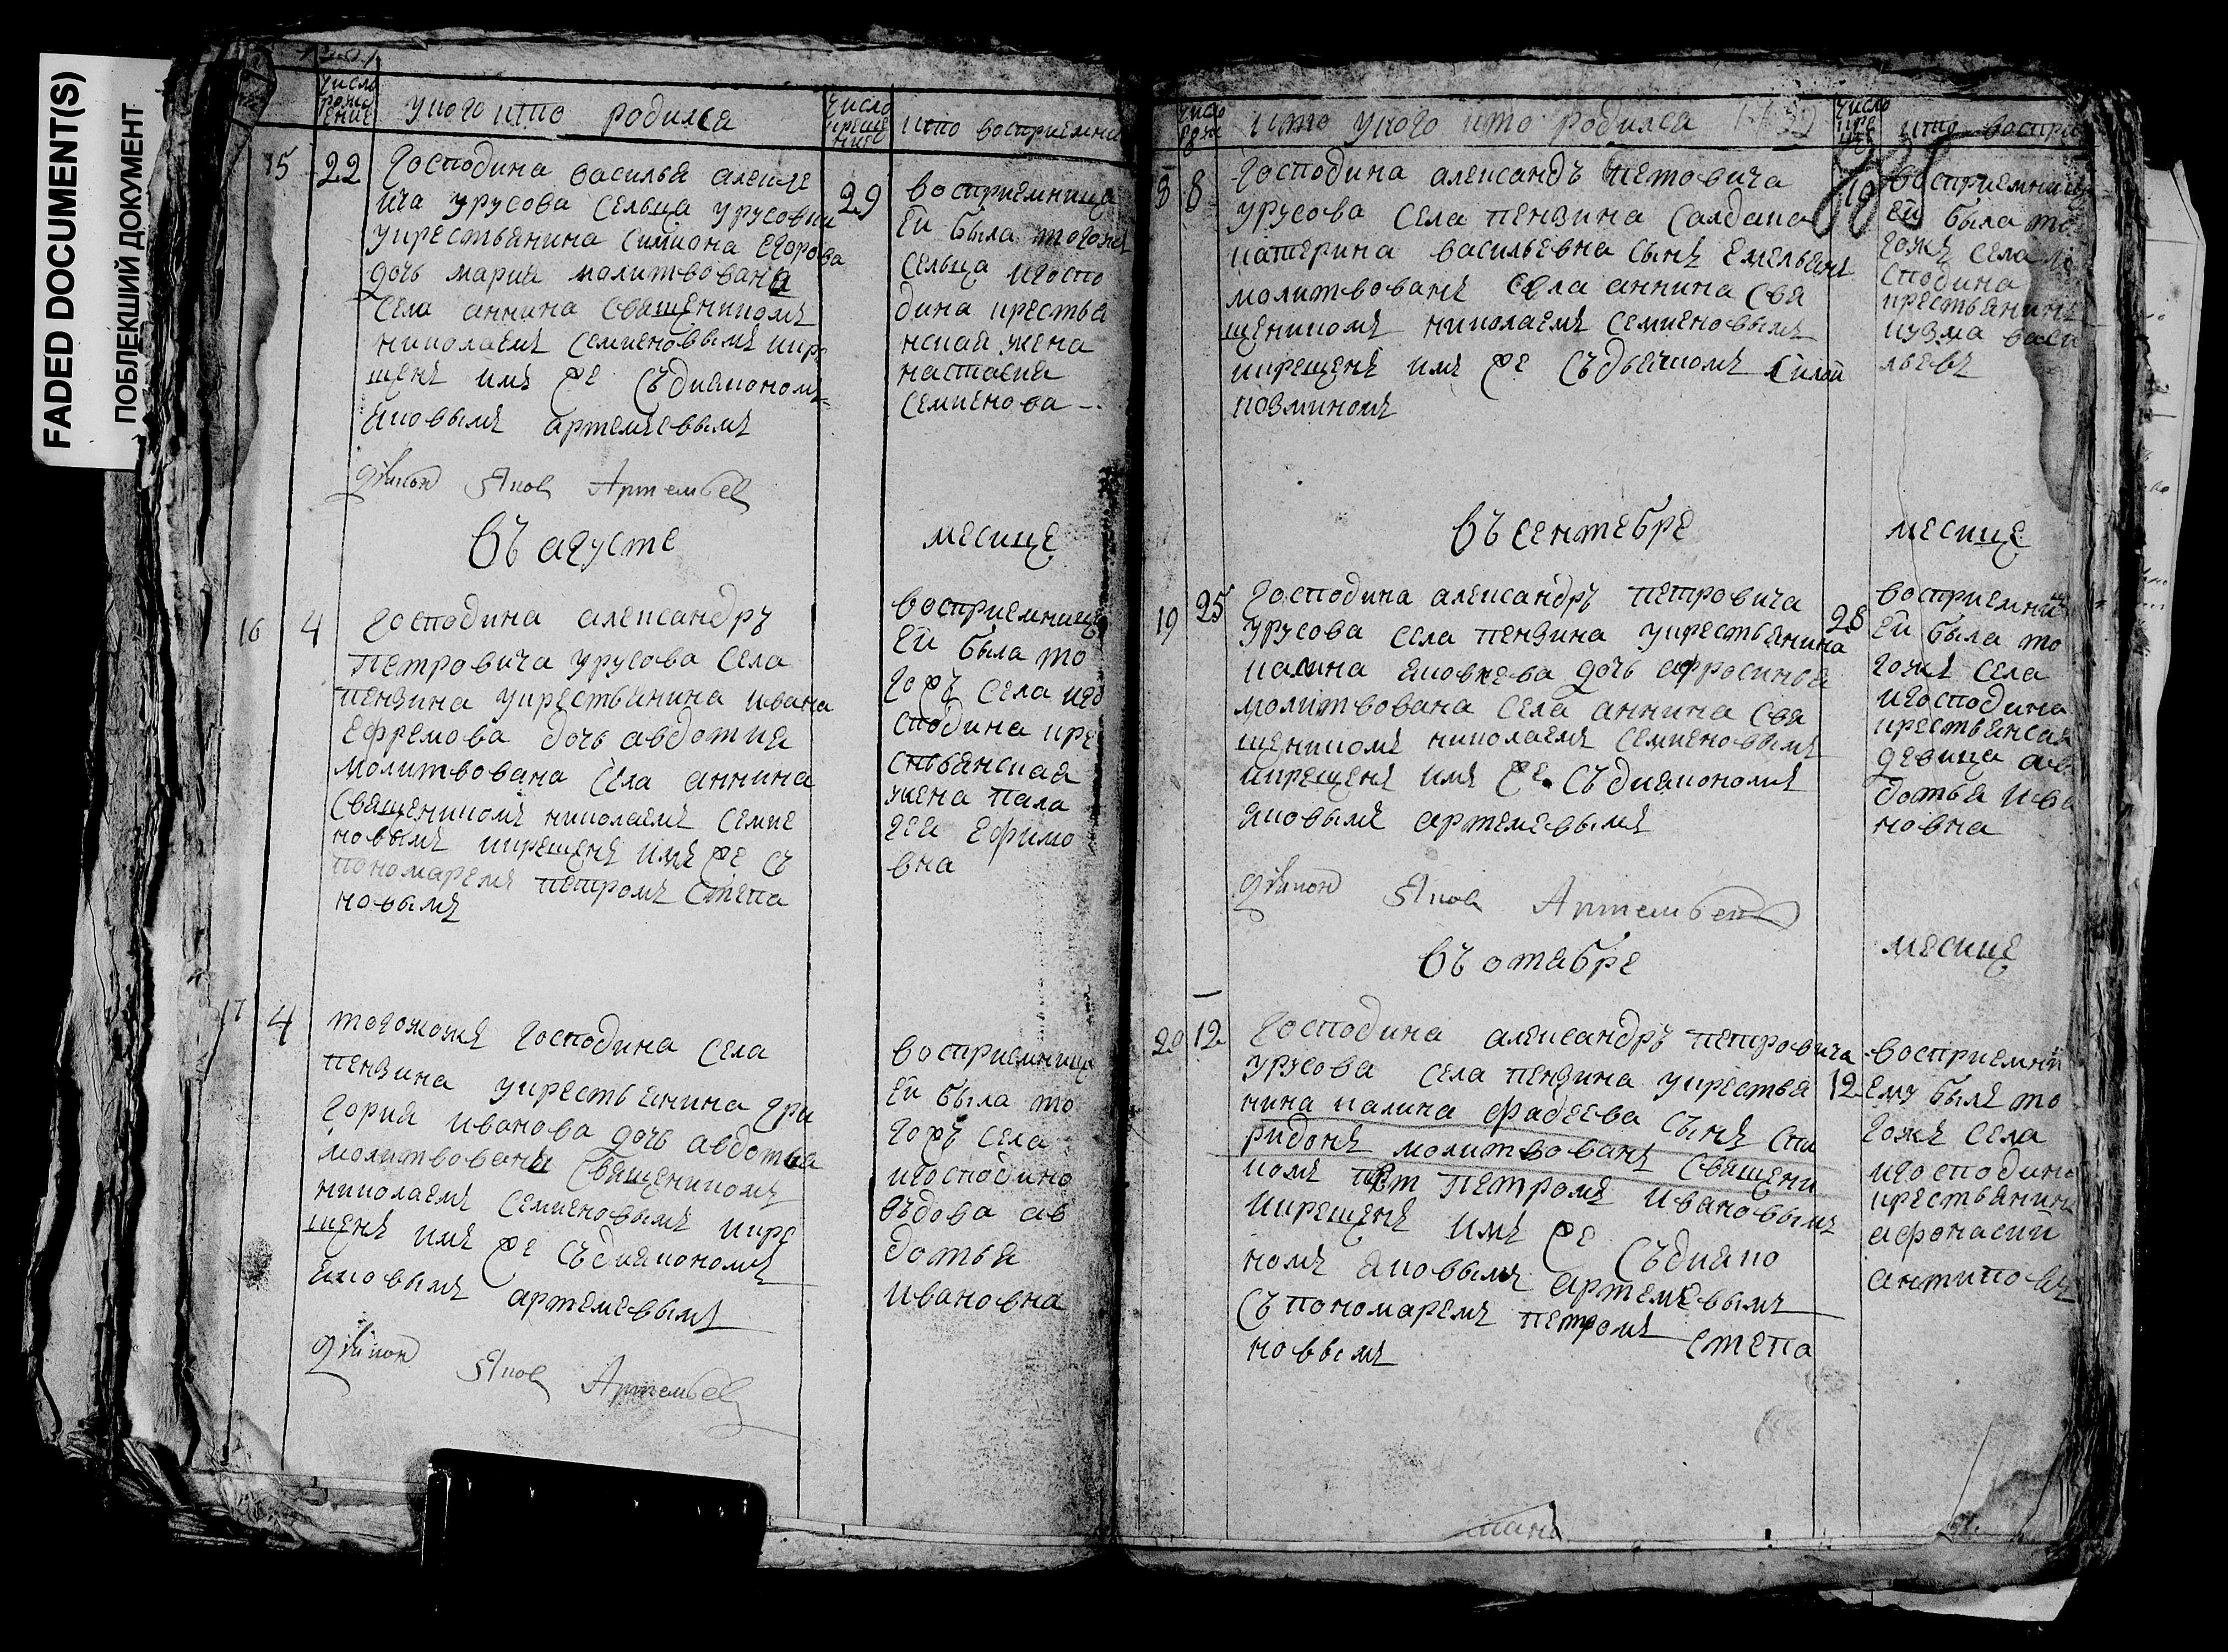 FADED DOCUMENT(S)
ПОБЛЕКШИЙ ДОКУМЕНТ
число
рожд
ение
у кого кто родился
число
креще
ние
кто восприемни
15
22
Господина василья алексе
ича урусова сельца урусовки
укрестьянина симиона егорова
дочь мария молитвована
села аннина священникомъ
николаемъ семиеновымъ икре
щенъ имъ же съдиакономъ
яковымъ артемьевымъ
29
восприемница
ей была тогожъ
сельца игоспо
дина крестья
нская жена
настасия
семиенова
диакон Яков Артемьев
въ августе месице
16
4
Господина александръ
петровича урусова села
пензина укрестьянина ивана
ефремова дочь авдотия
молитвована села аннина
священникомъ николаемъ семие
новымъ икрещенъ имъ же съ
пономаремъ петромъ степа
новымъ
восприемница
ей была то
гожъ села иго
сподина кре
стьянская
жена пала
гея ефимо
вна
17
4
тогожожъ господина села
пензина укрестьянина гри
гория иванова дочь авдотья
молитвованы священникомъ
николаемъ семиеновымъ икре
щенъ имъ же съдиакономъ
яковымъ артемевымъ
восприемница
ей была то
гожъ села
игосподино
въдова ав
дотья
ивановна
диакон Яков Артемьев
число
кто укого кто родился
число
кто воспри
8
8
Господина александъ петовича
урусова села пензина салдака
катерина васильевна сынъ емельянъ
молитвованъ села аннина свя
щеникомъ николаемъ семиеновымъ
икрещенъ имъ же съдьячкомъ силой
козминомъ
восприемница
ей была то
гожъ села
сподина
крестьянинъ
кузма васи
льевъ
въ сентебре месице
19
25
Господина александръ петровича
урусова села пензина укрестьянина
калина яковлева дочь афросинья
молитвована села аннина свя
щеникомъ николаемъ семиеновымъ
икрещенъ имъ же съдиакономъ
яковымъ артемевымъ
28
восприемниц
ей была то
гожъ села
игосподина
крестьянсая
девица ав
дотья ива
новна
диакон Яков Артемьев
въ отабре месице
20
12
Господина александръ петровича
урусова села пензина укрестья
нина калина фадеева сынъ спи
ридонъ молитвованъ священи
комъ петромъ ивановымъ
икрещенъ имъ же съдиако
номъ яковымъ артемевымъ
съ пономаремъ петромъ степа
новвымъ
12
восприемни
ему былъ то
гожъ села
игосподина
крестьянинъ
афонасии
антиповъ